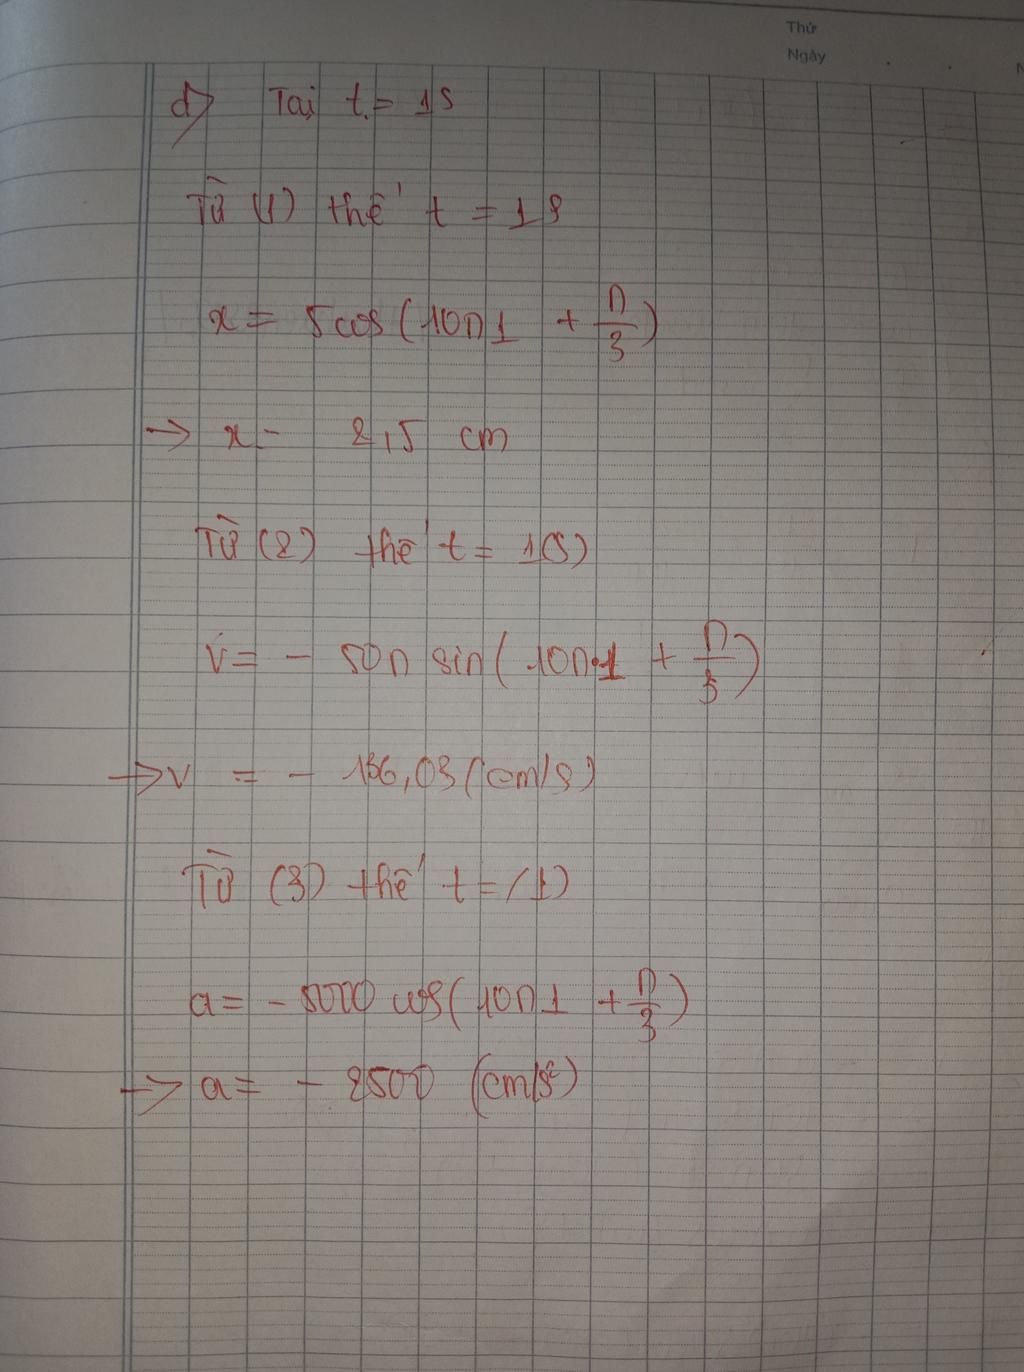 Thứ
Ngày
d) Tại t = 1s
Từ (1) thế t = 1s
x = 5cos(10π1 + π/3)
→ x = 2,5 cm
Từ (2) thế t = 1(s)
v = - 50π sin(10π.1 + π/3)
→ v = - 136,03 (cm/s)
Từ (3) thế t = (1)
a = - 5000 cos(10π1 + π/3)
→ a = - 2500 (cm/s²)